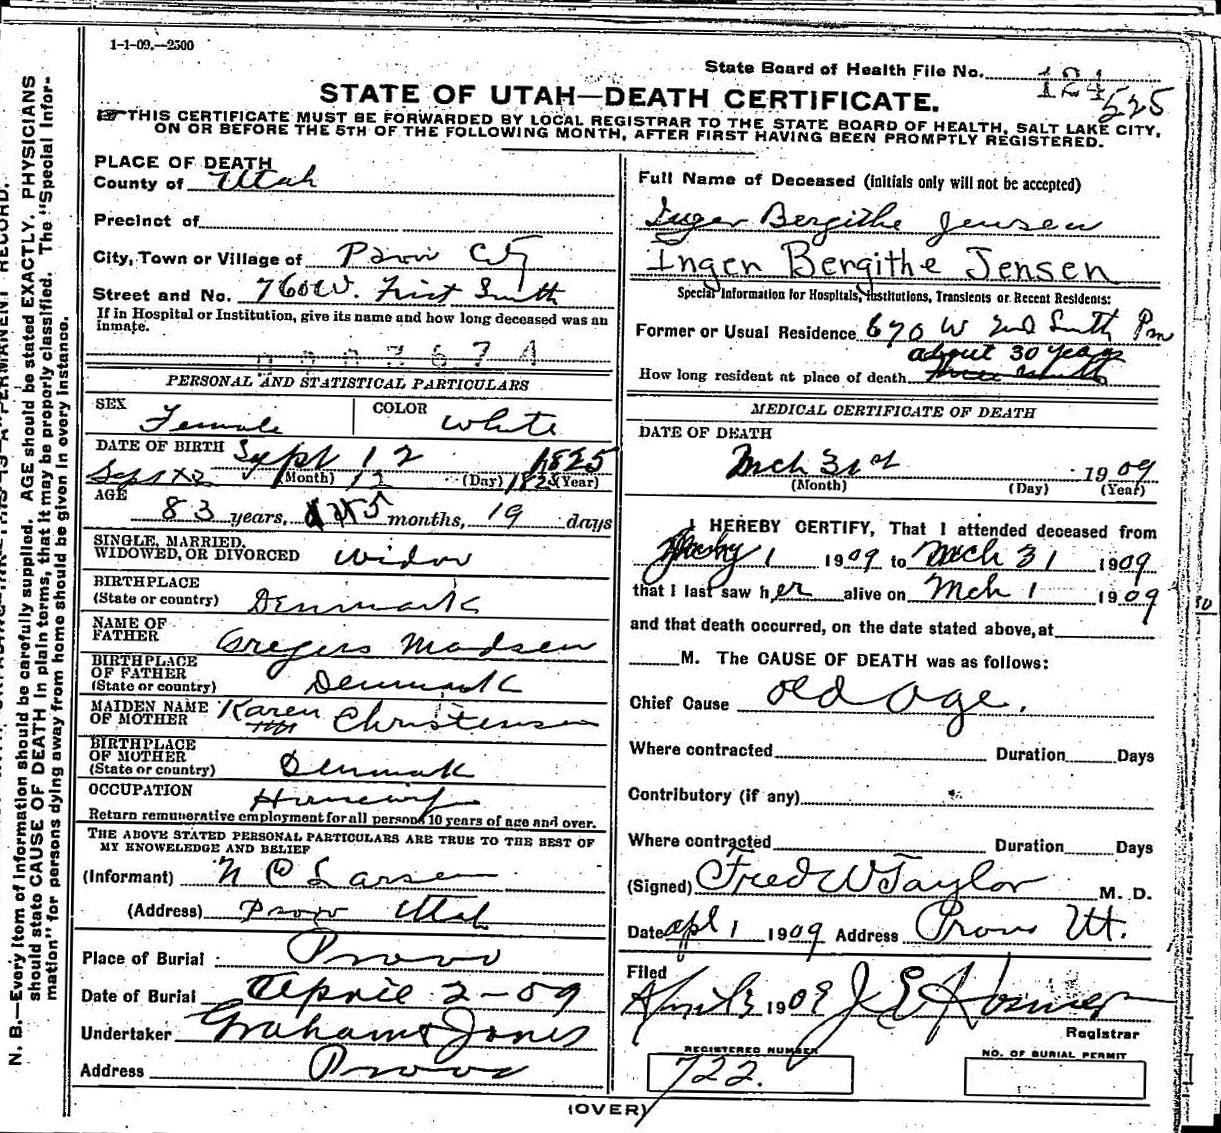 1-1-09.—2500
State Board of Health File No. 124
525
STATE OF UTAH—DEATH CERTIFICATE.
☞THIS CERTIFICATE MUST BE FORWARDED BY LOCAL REGISTRAR TO THE STATE BOARD OF HEALTH, SALT LAKE CITY,
ON OR BEFORE THE 5TH OF THE FOLLOWING MONTH, AFTER FIRST HAVING BEEN PROMPTLY REGISTERED.
N. B.—Every item of information should be carefully supplied. AGE should be stated EXACTLY. PHYSICIANS
should state CAUSE OF DEATH in plain terms, that it may be properly classified. The "Special Infor-
mation" for persons dying away from home should be given in every instance.
PLACE OF DEATH
County of Utah
Precinct of
City, Town or Village of Provo City
Street and No. 760 W. First South
If in Hospital or Institution, give its name and how long deceased was an
inmate.
PERSONAL AND STATISTICAL PARTICULARS
SEX Female COLOR White
DATE OF BIRTH Sept 12 1825
(Month) 12 (Day) 1825 (Year)
AGE
83 years, 5 months, 19 days
SINGLE, MARRIED,
WIDOWED, OR DIVORCED Widow
BIRTHPLACE
(State or country) Denmark
NAME OF
FATHER Gregers Madsen
BIRTHPLACE
OF FATHER
(State or country) Denmark
MAIDEN NAME
OF MOTHER Karen Christensen
BIRTHPLACE
OF MOTHER
(State or country) Denmark
OCCUPATION Housewife
Return remunerative employment for all persons 10 years of age and over.
THE ABOVE STATED PERSONAL PARTICULARS ARE TRUE TO THE BEST OF
MY KNOWELEDGE AND BELIEF
(Informant) N C Larsen
(Address) Provo Utah
Place of Burial Provo
Date of Burial April 2-09
Undertaker Graham & Jones
Address Provo
Full Name of Deceased (initials only will not be accepted)
Inger Bergithe Jensen
Ingen Bergithe Jensen
Special Information for Hospitals, Institutions, Transients or Recent Residents:
Former or Usual Residence 670 W 2nd South
about 30 years
How long resident at place of death
MEDICAL CERTIFICATE OF DEATH
DATE OF DEATH
Mch 31st 1909
(Month) (Day) (Year)
I HEREBY CERTIFY, That I attended deceased from
1 1909 to Mch 31 1909
that I last saw her alive on Mch 1 1909
and that death occurred, on the date stated above, at
M. The CAUSE OF DEATH was as follows:
Chief Cause Old Age.
Where contracted Duration Days
Contributory (if any)
Where contracted Duration Days
(Signed) Fred W Taylor M. D.
Date Apl 1 1909 Address Provo Ut.
Filed
April 3 1909 J E
Registrar
REGISTERED NUMBER
722.
NO. OF BURIAL PERMIT
(OVER)